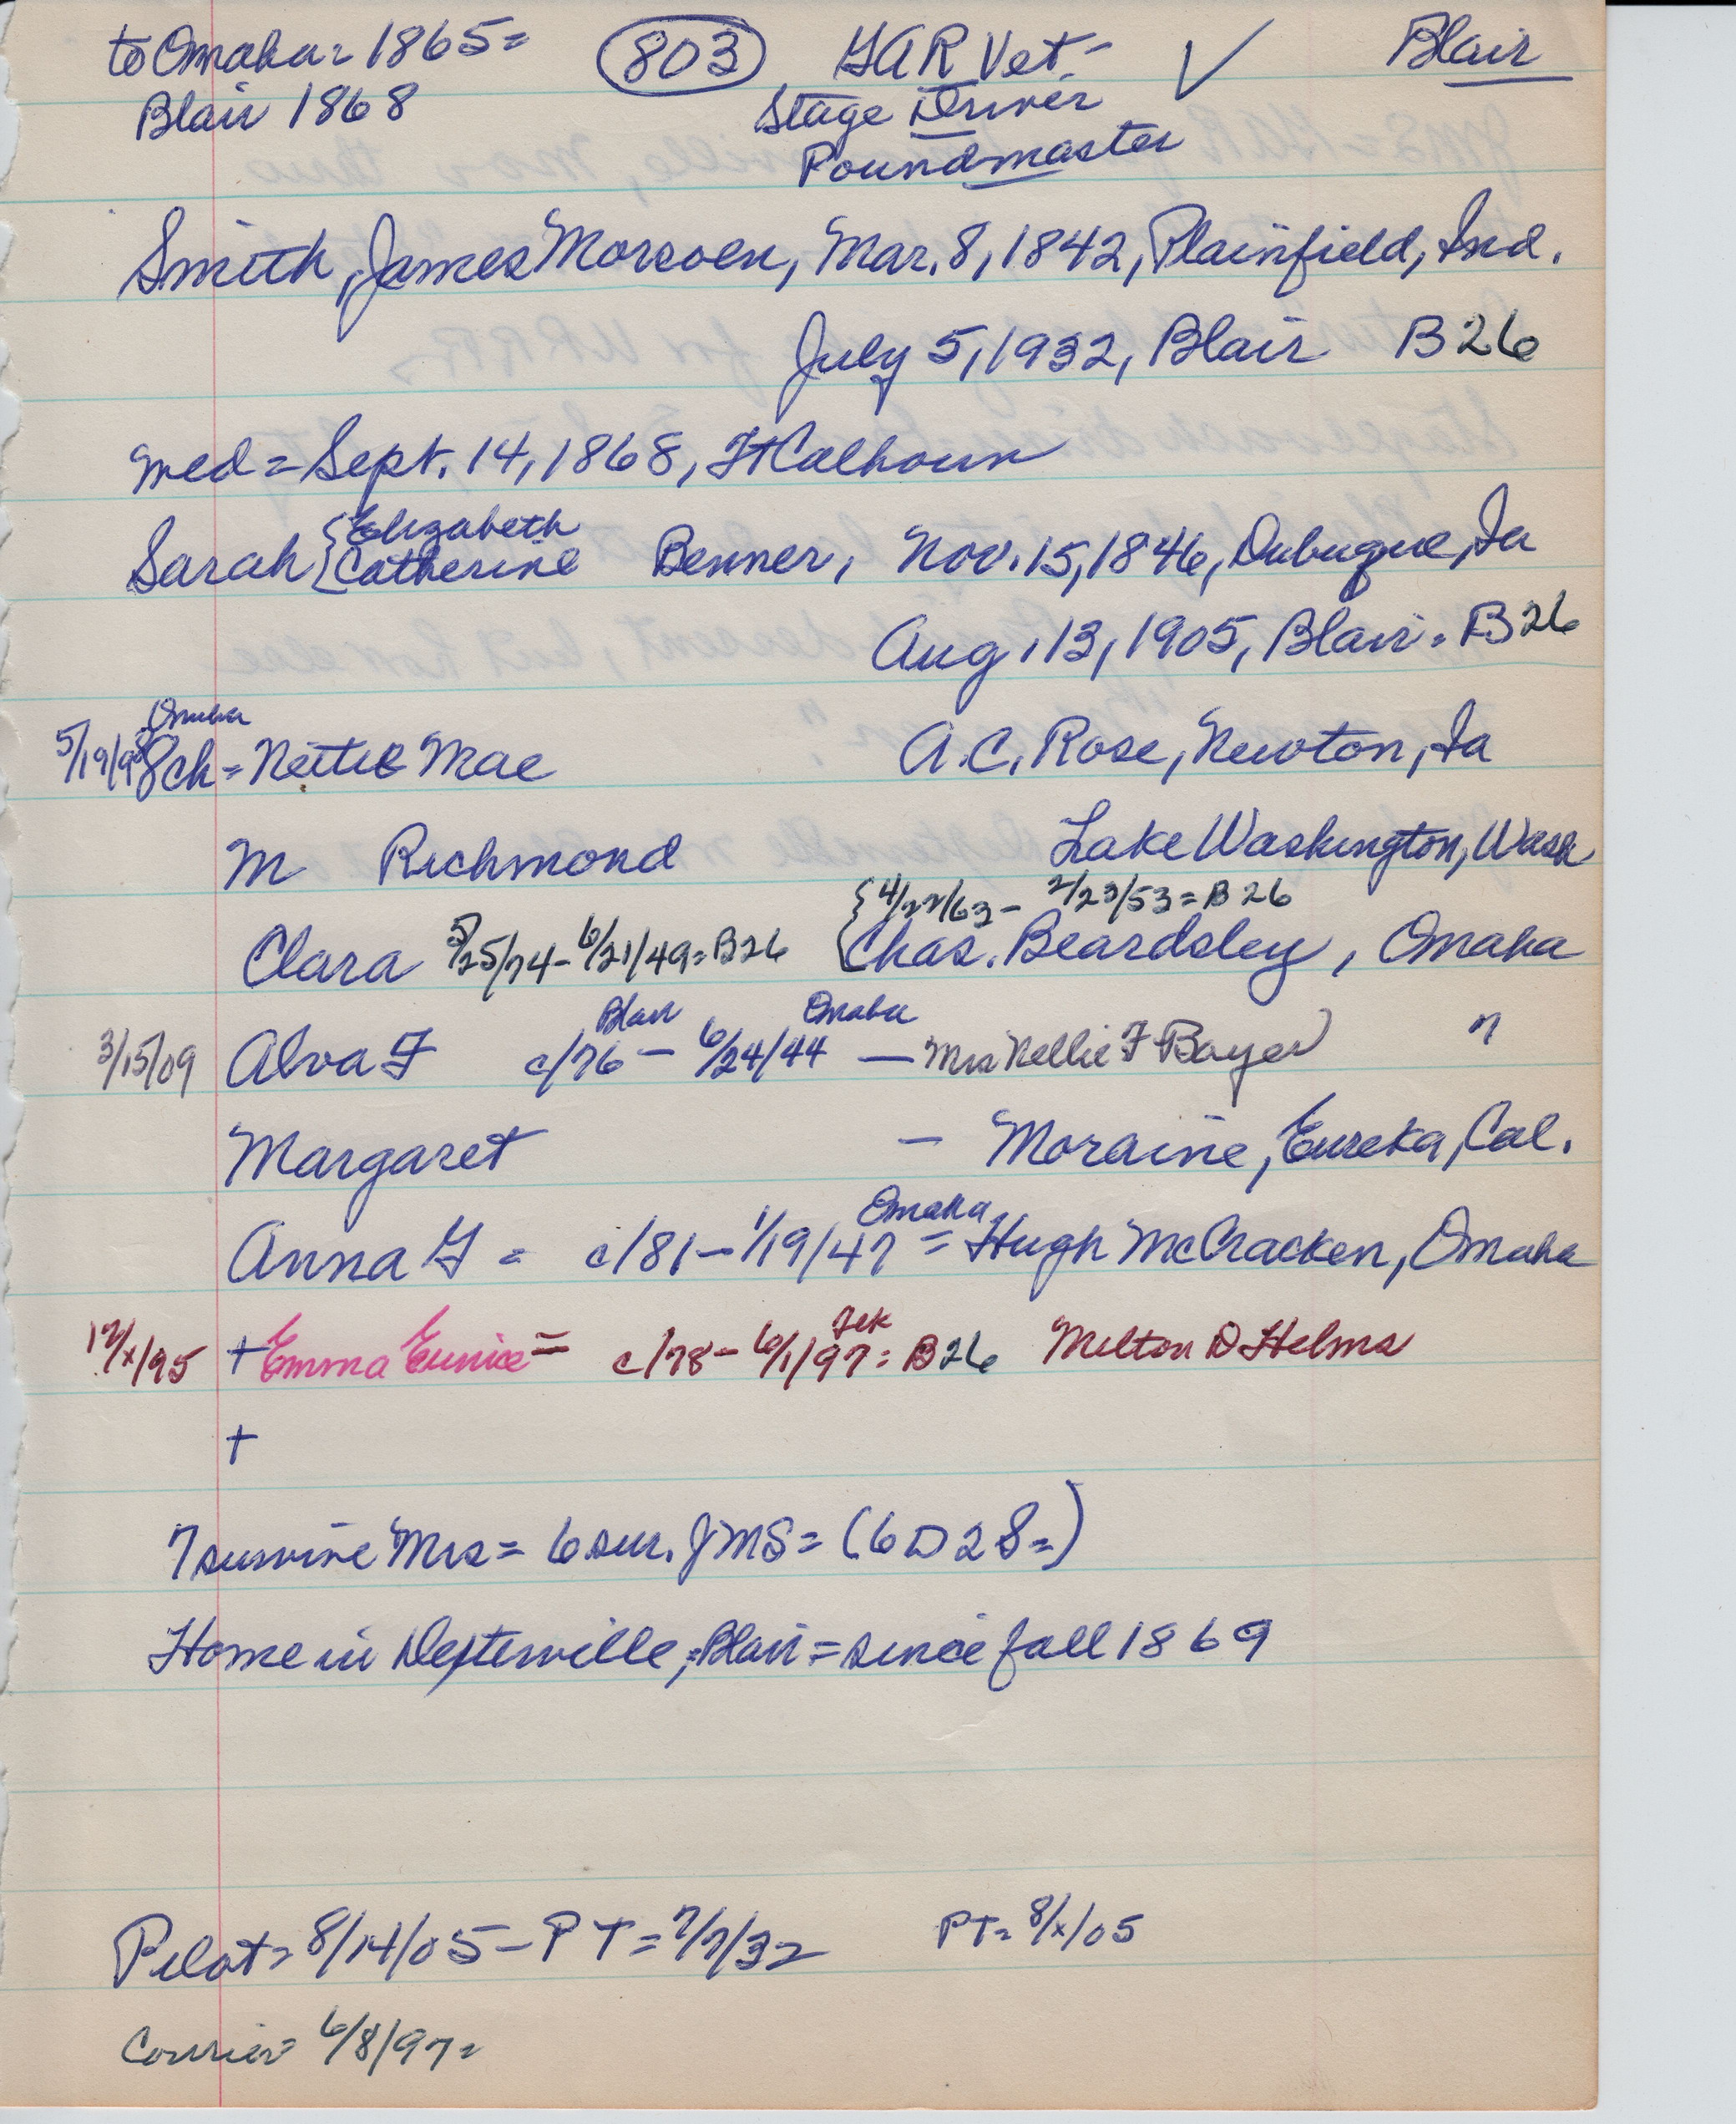 to Omaha = 1865 = (803) GAR Vet - ✓ Blair
Blair 1868 Stage Driver
Poundmaster
Smith, James Mar. 8, 1842, Plainfield, Ind.
July 5, 1932, Blair B26
med = Sept. 14, 1868, Ft Calhoun
Sarah { Elizabeth
Catherine Benner, Nov. 15, 1846, Dubuque, Ia
Aug. 13, 1905, Blair = B26
Omaha
5/19/98 8ch = Nettie Mae A.C. Rose, Newton, Ia
M Richmond Lake Washington, Wash
{ 4/22/63 - 2/23/53 = B26
Clara 5/25/74 - 6/21/49 = B26 { Chas. Beardsley, Omaha
Blair Omaha
3/15/09 Alva F c/76 - 6/24/44 - Mrs Nellie F Boyer "
Margaret - Moraine, Eureka, Cal.
Omaha
Anna G = c/81 - 1/19/47 = Hugh McCracken, Omaha
Tek
12/x/95 + Emma Eunice = c/78 - 6/1/97 = B26 Milton D Helms
+
7 survive Mrs = 6 sur. JMS = (6 D 2 S =)
Home in Dexterville, Blair = since fall 1869
Pilot = 8/14/05 - PT = 7/7/32 PT = 8/x/05
Courier = 6/8/97 =